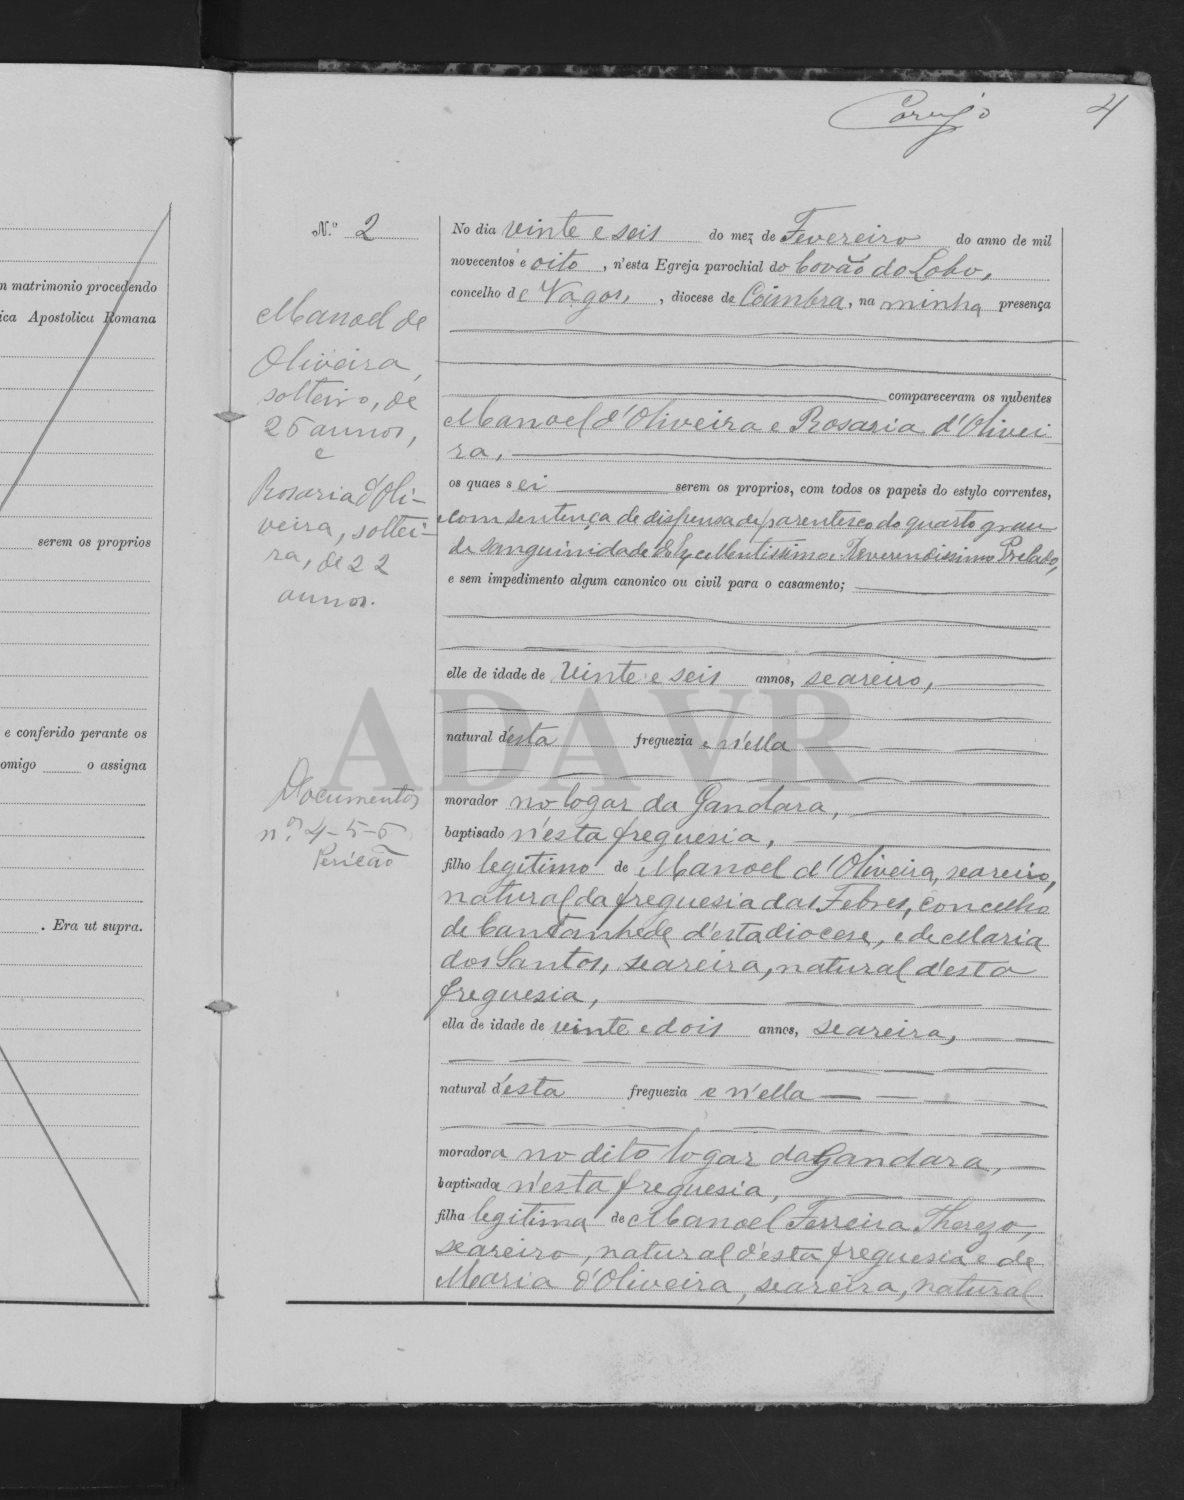 Corujo
4
n matrimonio procedendo
ica Apostolica Romana
serem os proprios
e conferido perante os
omigo o assigna
. Era ut supra.
N.º 2
Manoel de
Oliveira,
solteiro, de
26 annos,
e
Rosaria d'Oli-
veira, soltei-
ra, de 22
annos.
Documentos
n.os 4-5-6
No dia vinte e seis do mez de Fevereiro do anno de mil
novecentos e oito, n'esta Egreja parochial do Covão do Lobo,
concelho de Vagos, diocese de Coimbra, na minha presença
compareceram os nubentes
Manoel d'Oliveira e Rosaria d'Olivei
ra,
os quaes sei serem os proprios, com todos os papeis do estylo correntes,
com sentença de dispensa de parentesco do quarto grau
de sanguinidade do Excellentissimo e Reverendissimo Prelado,
e sem impedimento algum canonico ou civil para o casamento;
elle de idade de vinte e seis annos, seareiro,
natural d'esta freguezia e n'ella
morador no logar da Gandara,
baptisado n'esta freguesia,
filho legitimo de Manoel d'Oliveira, seareiro,
natural da freguesia das Febres, concelho
de Cantanhede d'esta diocese, e de Maria
dos Santos, seareira, natural d'esta
freguesia,
ella de idade de vinte e dois annos, seareira,
natural d'esta freguezia e n'ella
moradora no dito logar da Gandara,
baptisada n'esta freguesia,
filha legitima de Manoel Ferreira Therezo,
seareiro, natural d'esta freguesia e de
Maria d'Oliveira, seareira, natural
ADAVR